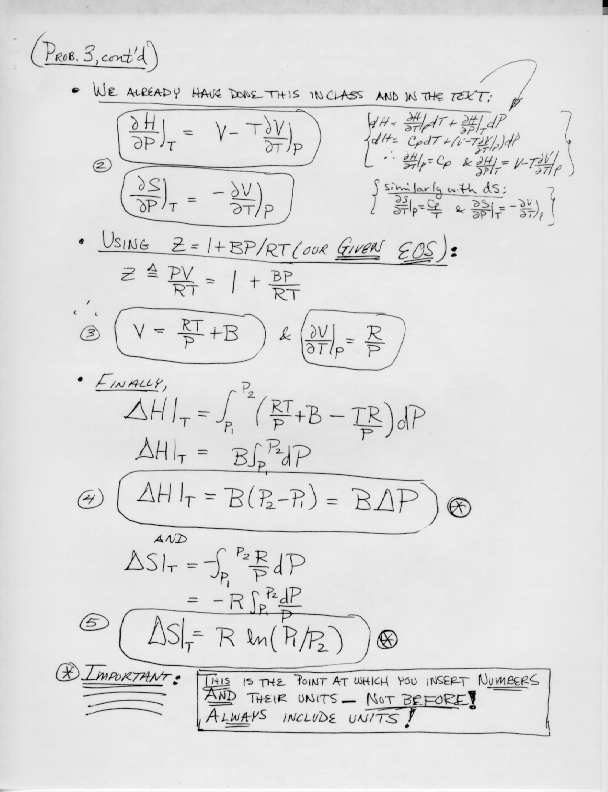 (PROB. 3, cont'd)
• WE ALREADY HAVE DONE THIS IN CLASS AND IN THE TEXT:
∂H/∂P|T = V - T ∂V/∂T|P
{dH = ∂H/∂T|P dT + ∂H/∂P|T dP
{dH = CpdT + (V-T∂V/∂T|P)dP
∴ ∂H/∂T|P = Cp & ∂H/∂P|T = V-T∂V/∂T|P }
②
∂S/∂P|T = -∂V/∂T)P
{similarly with dS:
∂S/∂T|P = Cp/T & ∂S/∂P|T = -∂V/∂T)P }
• USING Z = 1+BP/RT (OUR GIVEN EOS):
Z ≜ PV/RT = 1 + BP/RT
∴
③ V = RT/P + B & ∂V/∂T|P = R/P
• FINALLY,
ΔH|T = ∫P1^P2 (RT/P + B - TR/P) dP
ΔH|T = B∫P1^P2 dP
④ ΔH|T = B(P2-P1) = BΔP ⊛
AND
ΔS|T = -∫P1^P2 R/P dP
= -R∫P1^P2 dP/P
⑤ ΔS|T = R ln(P1/P2) ⊛
⊛ IMPORTANT:
THIS IS THE POINT AT WHICH YOU INSERT NUMBERS
AND THEIR UNITS — NOT BEFORE!
ALWAYS INCLUDE UNITS!